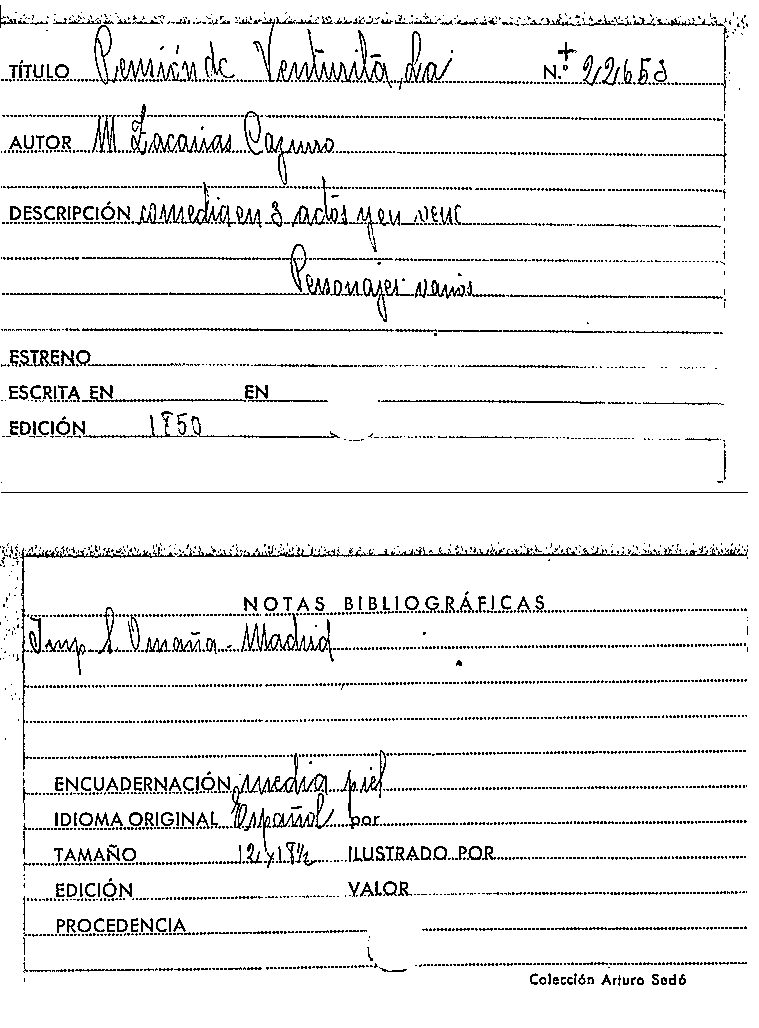 TÍTULO Pensión de Venturita, La N.º + 22653
AUTOR M Zacarias Cazurro
DESCRIPCIÓN comedia en 3 actos y en verso
Personajes: varios
ESTRENO
ESCRITA EN EN
EDICIÓN 1850
NOTAS BIBLIOGRÁFICAS
Imp S. Omaña - Madrid
ENCUADERNACIÓN media piel
IDIOMA ORIGINAL Español por
TAMAÑO 12 x 18½ ILUSTRADO POR
EDICIÓN VALOR
PROCEDENCIA
Colección Arturo Sedó